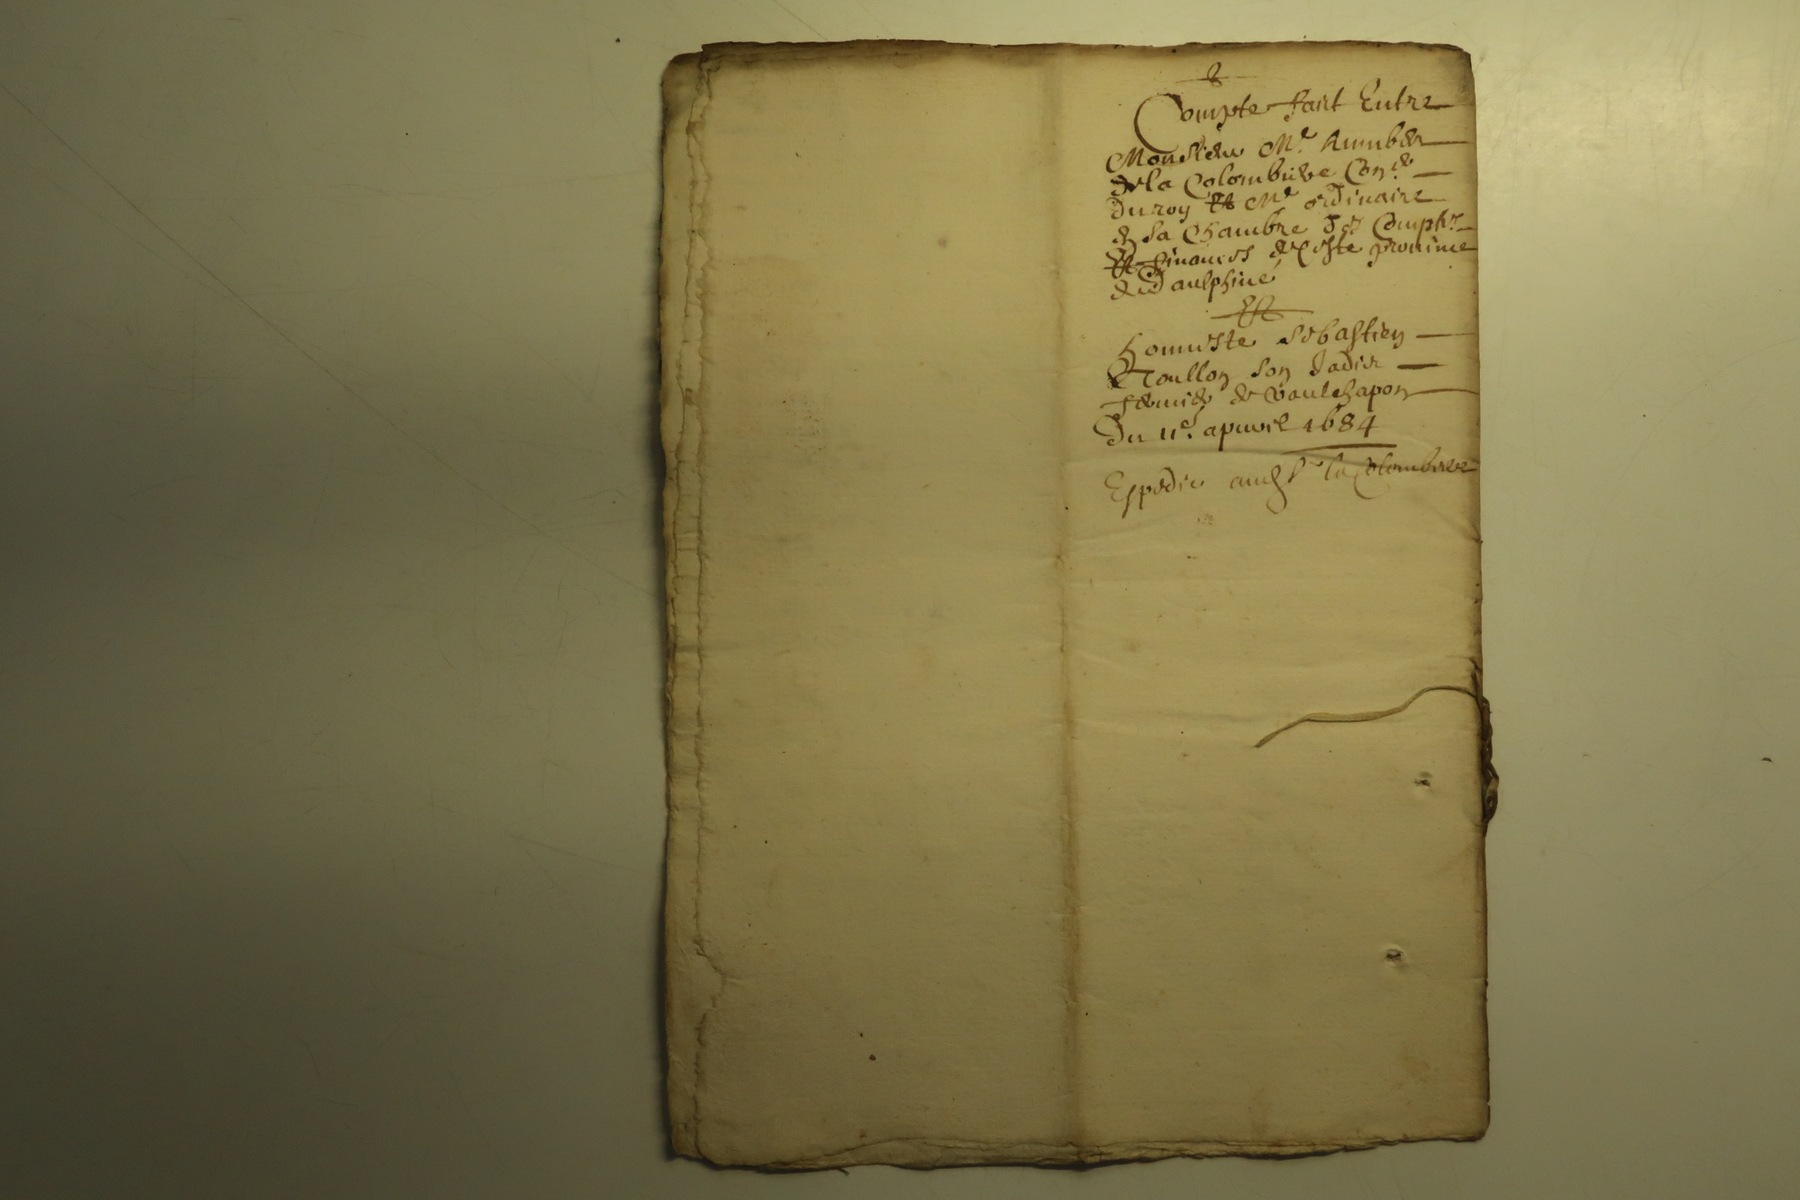 Compte fait Entre
Monsieur Mr. humber
de la Colombiere Conr.
du roy Et Mr. ordinaire
En la Chambre des Comptes
Et finances de Ceste province
de Daulphiné
Et
honneste Sebastien
Toullon son Jadis
fermier de vaulchapon
Du 11e. apvril 1684
Expedie audt. Sr la Colombiere